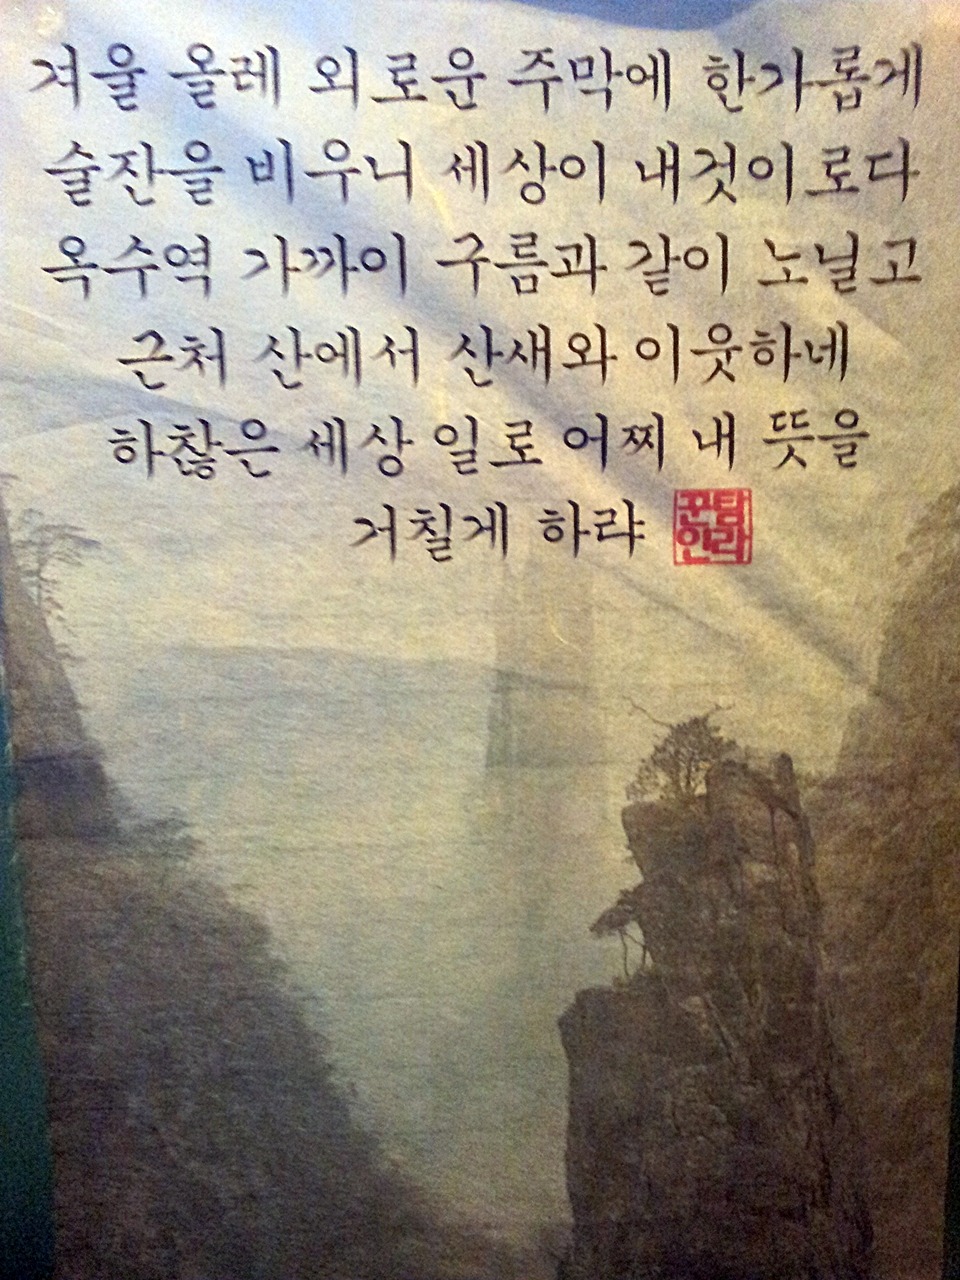 겨울 올레 외로운 주막에 한가롭게
술잔을 비우니 세상이 내것이로다
옥수역 가까이 구름과 같이 노닐고
근처 산에서 산새와 이웃하네
하찮은 세상 일로 어찌 내 뜻을
거칠게 하랴